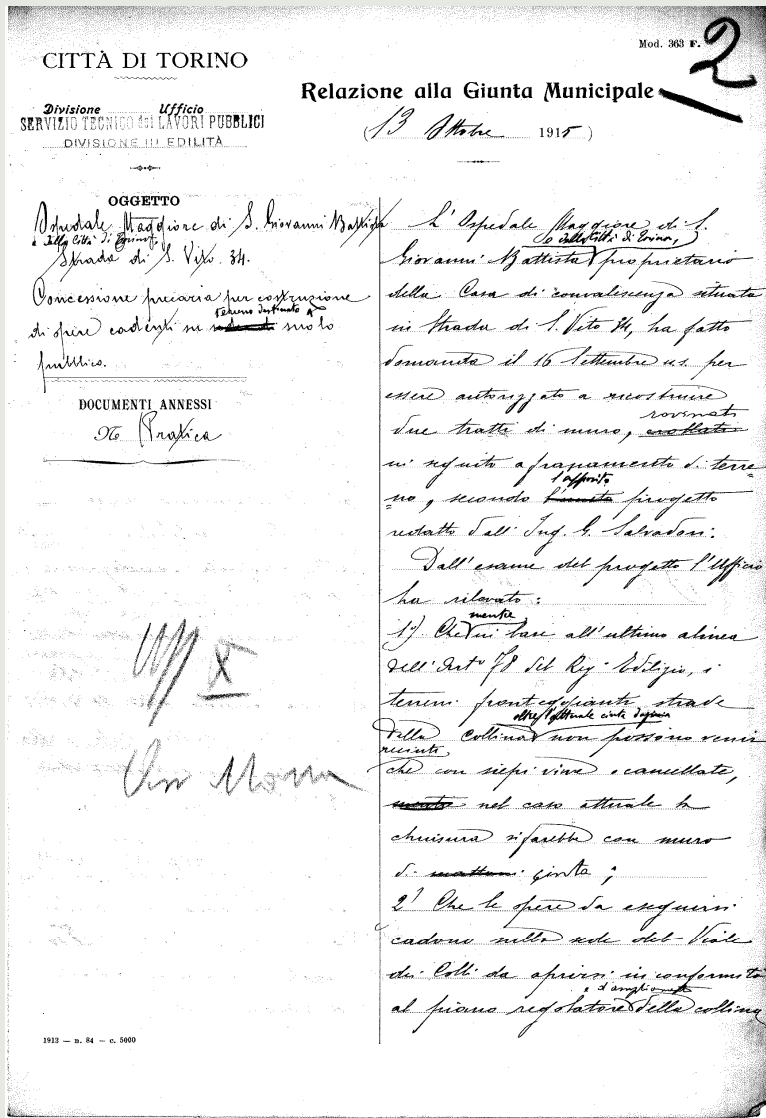 Mod. 363 F.
2
CITTÀ DI TORINO
Divisione Ufficio
SERVIZIO TECNICO dei LAVORI PUBBLICI
DIVISIONE III EDILITÀ
Relazione alla Giunta Municipale
(13 Ottobre 1915)
OGGETTO
Ospedale Maggiore di S. Giovanni Battista
e della Città di Torino
Strada di S. Vito. 34.
Concessione precaria per costruzione
terreno destinato a
di opere cadenti su suolo
pubblico.
DOCUMENTI ANNESSI
N Pratica
Uff X
1913 — n. 84 — c. 5000
L'Ospedale Maggiore di S.
e della Città di Torino,
Giovanni Battista proprietario
della Casa di convalescenza situata
in Strada di S. Vito 34, ha fatto
domanda il 16 Settembre u.s. per
essere autorizzato a ricostruire
rovinati
due tratti di muro, crollati
in seguito a franamento di terre=
l'apposito
=no, secondo l'unito progetto
redatto dall'Ing. G. Salvadori:
Dall'esame del progetto l'Ufficio
ha rilevato:
mentre
1°) Che in base all'ultimo alinea
dell'Art° 78 del Reg. Edilizio, i
terreni fronteggianti strade
oltre l'attuale cinta daziaria
della Collina non possono venir
recinti
che con siepi vive o cancellate,
nel caso attuale la
chiusura si farebbe con muro
di mattoni cinta;
2° Che le opere da eseguirsi
cadono nella sede del Viale
dei Colli da aprirsi in conformità
e d'ampliamento
al piano regolatore della collina